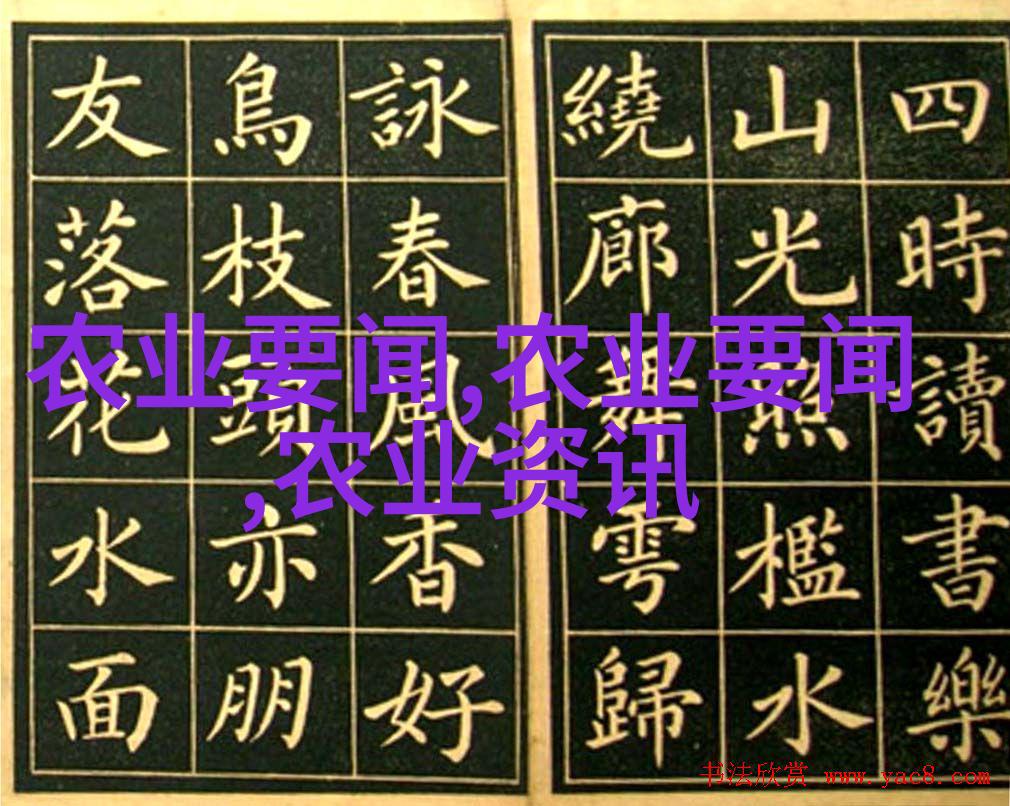 四時讀書樂
山光照檻水
繞廊舞雩歸
詠春風香好
鳥枝頭亦朋
友落花水面
农业要闻,农业要闻
,农业资讯
书法欣赏 www.yac8.com